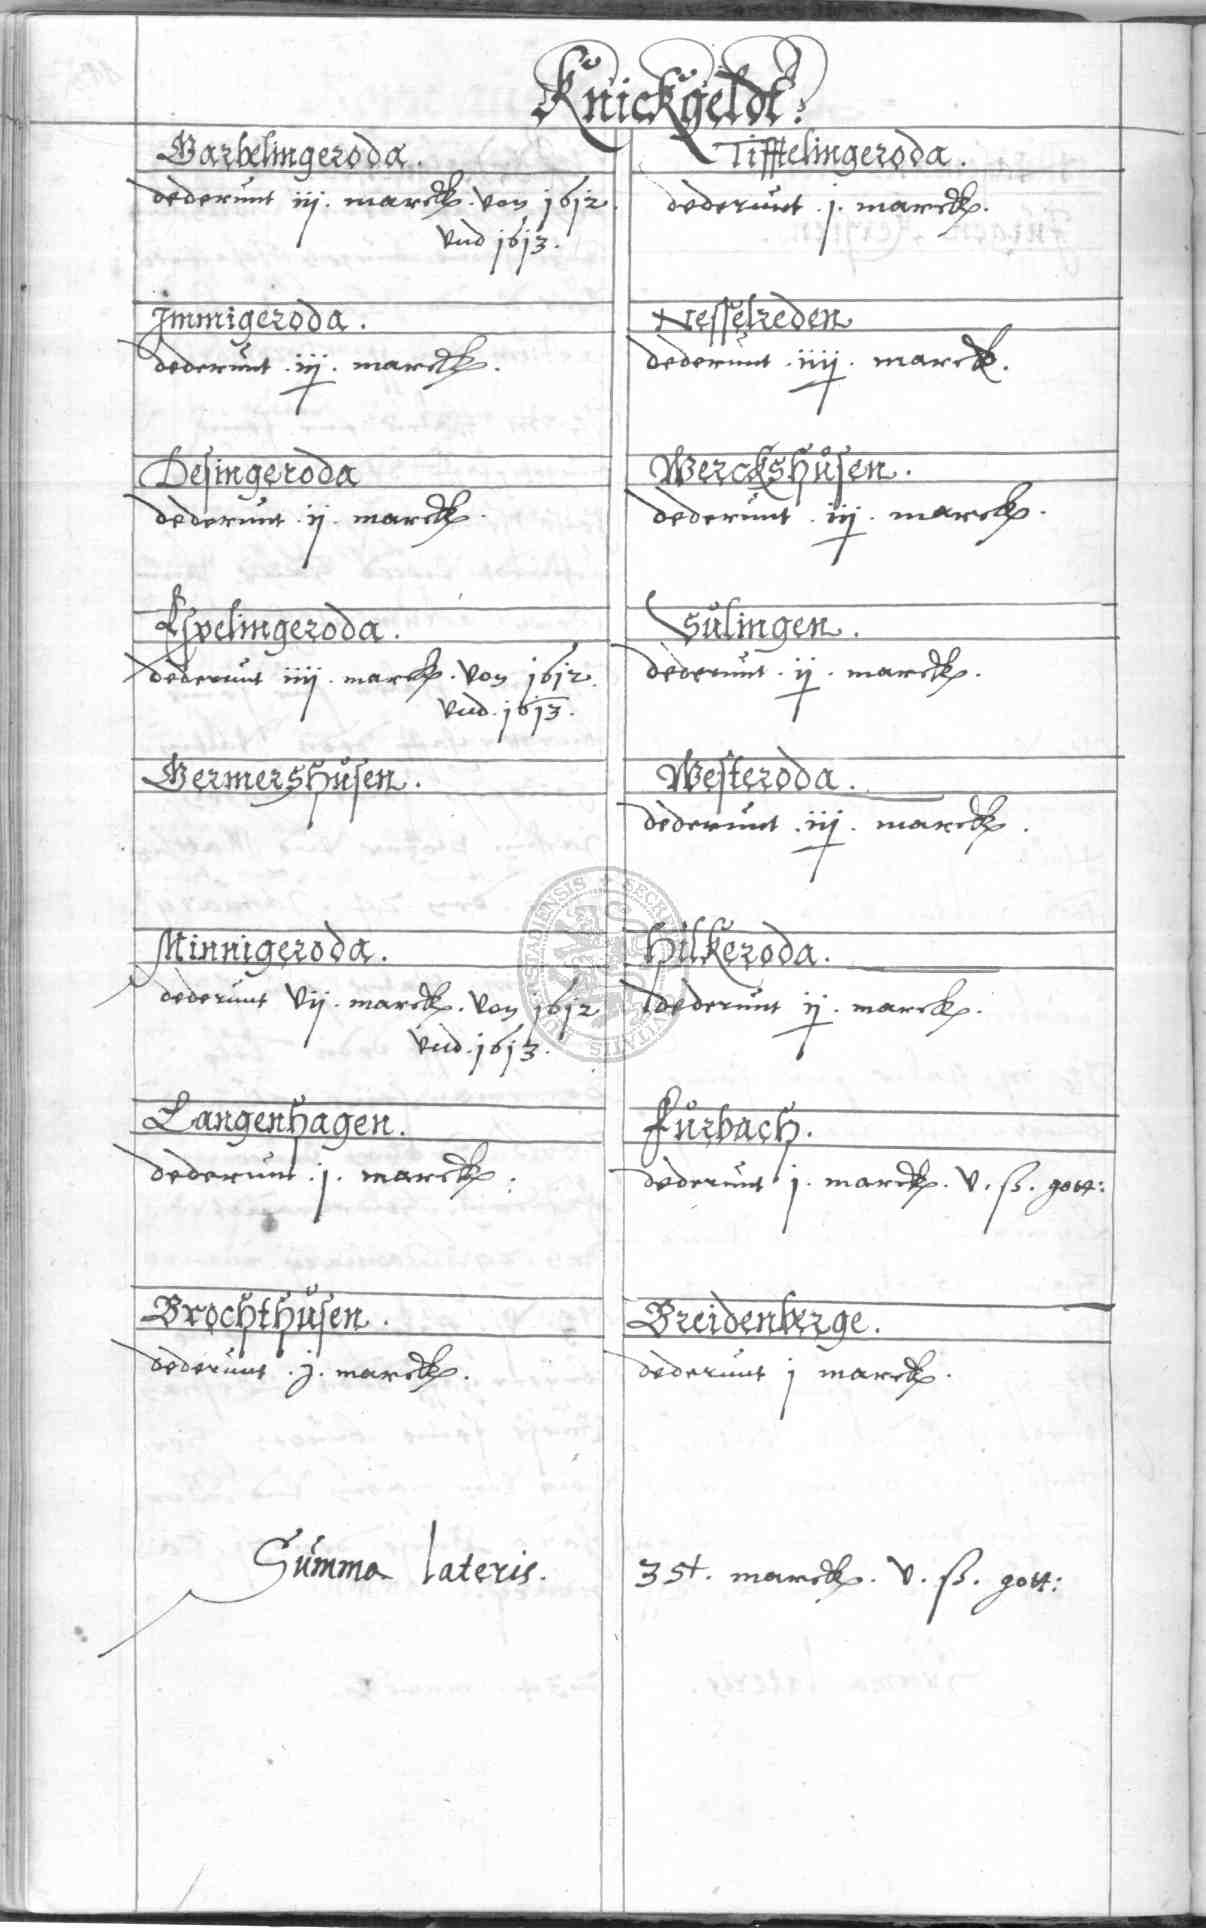 Knickgeldt:
Garbelingeroda.
dederunt iij. marck. von 1612.
vnd 1613.
Immigeroda.
dederunt .iij. marck.
Desingeroda
dederunt .ij. marck.
Espelingeroda.
dederunt iiij. marck. von 1612.
vnd. 1613.
Germershusen.
Minnigeroda.
dederunt vij. marck. von 1612
vnd. 1613.
Langenhagen.
dederunt .j. marck.
Brochthusen.
dederunt .j. marck.
Summa lateris.
Tifftelingeroda.
dederunt .j. marck.
Nesselreden
dederunt .iiij. marck.
Werckshusen.
dederunt .iij. marck.
Sulingen.
dederunt .ij. marck.
Westeroda.
dederunt .iij. marck.
Hilkeroda.
dederunt ij. marck.
Furbach.
dederunt j. marck. v. ß. gott:
Breidenberge.
dederunt j marck.
35 marck. v. ß. gott: